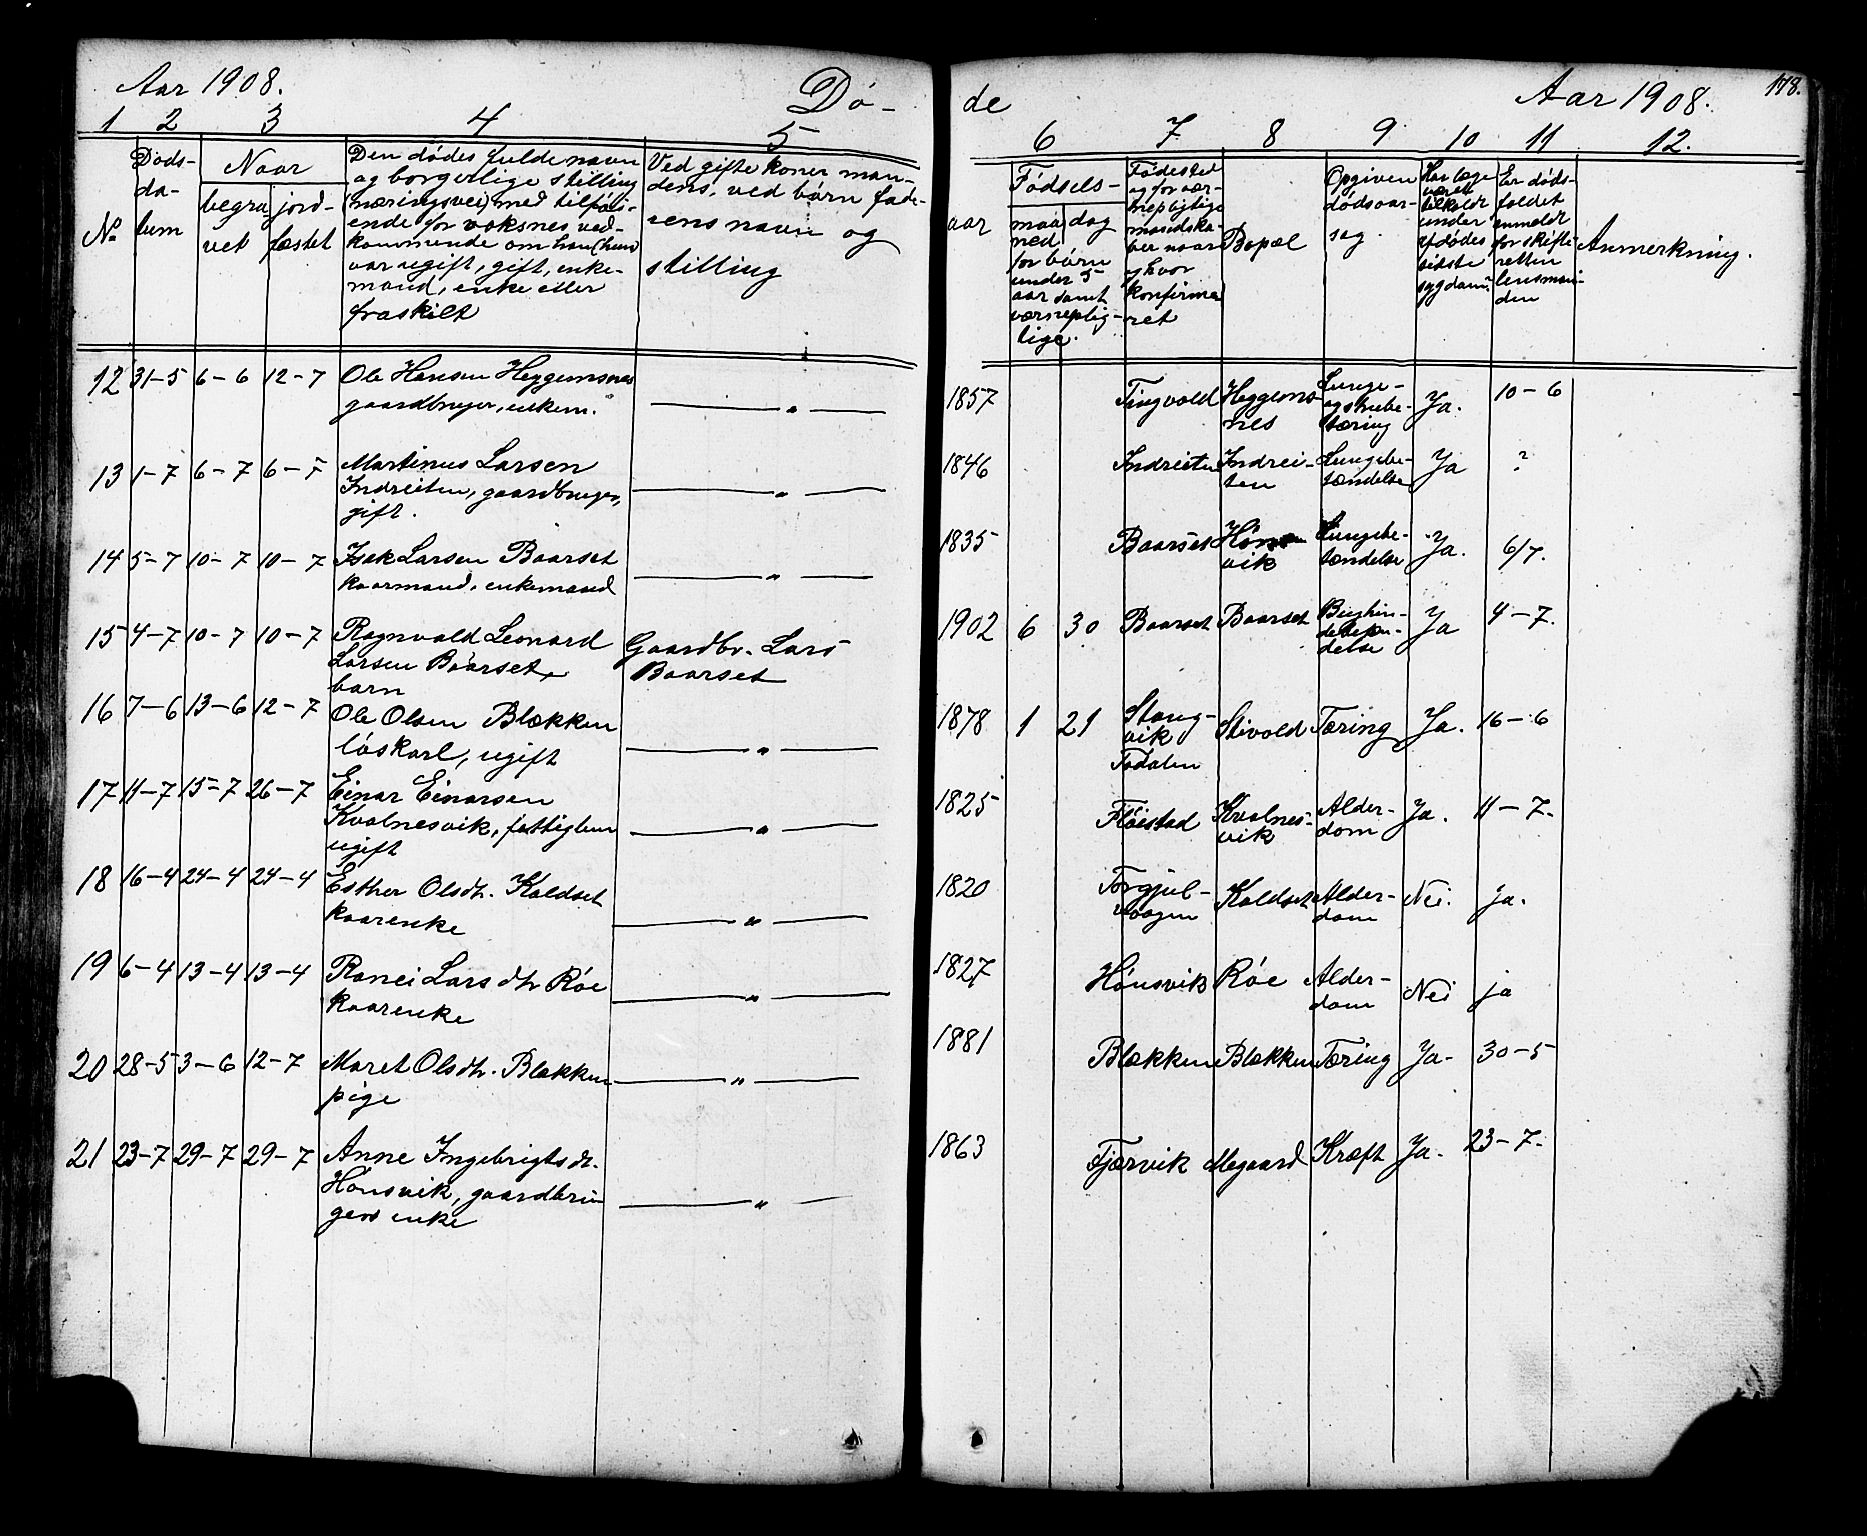 Aar 1908.
Dø-
de
Aar 1908.
178.
1 2 3 4 5
6 7 8 9 10 11 12.
No
Døds-
da-
tum
Naar
begra
vet
jord-
fæstet
Den dødes fulde navn
og borgerlige stilling
(næringsvei) med tilføi-
ende for voksnes ved-
kommende om han (hun)
var ugift, gift, enke-
mand, enke eller
fraskilt
Ved gifte koner man-
dens, ved børn fade-
rens navn og
stilling
Fødsels-
aar
maa
ned
dag
for børn
under 5
aar samt
værneplig-
lige.
Fødested
og for vær-
nepligtige
mandska-
ber naar
og hvor
konfirme
ret
Bopæl
Opgiven
dødsaar-
sag.
Har læge
været
tilkaldt
under
afdødes
sidste
sygdom?
Er døds-
faldet
anmeldt
for skifte-
retten
lensman-
den
Anmerkning.
12 31-5 6-6 12-7 Ole Hansen Heggemsnes
gaardbruger, enkem. — " —
1857 Tingvold Heggems-
nes Lunge-
og strube-
tæring Ja. 10-6
13 1-7 6-7 6-7 Martinus Larsen
Indreiten, gaardbruger,
gift. — " —
1846 Indreiten Indrei-
ten Lungebe-
tændelse Ja ?
14 5-7 10-7 10-7 Isak Larsen Baarset
kaarmand, enkemand — " —
1835 Baarset Høns-
vik Lungebe-
tændelse Ja. 6/7.
15 4-7 10-7 10-7 Ragnvald Leonard
Larsen Baarset,
barn
Gaardbr. Lars
Baarset
1902 6 30 Baarset Baarset Ja 4-7.
16 7-6 13-6 12-7 Ole Olsen Blekken
løskarl, ugift — " —
1878 1 21 Stang-
vik
Todalen Stivold Tæring Ja. 16-6
17 11-7 15-7 26-7 Einar Einarsen
Kvalnesvik, fattiglem
ugift — " —
1825 Fløistad Kvalnes-
vik Alder-
dom Ja. 11-7.
18 16-4 24-4 24-4 Esther Olsdtr. Koldset
kaarenke — " —
1820 Torgjul-
vaagen Koldset Alder-
dom Nei. ja.
19 6-4 13-4 13-4 Ranei Larsdtr Røe
kaarenke — " —
1827 Hønsvik Røe Alder-
dom Nei ja
20 28-5 3-6 12-7 Maret Olsdtr. Blekken
pige — " —
1881 Blekken Blekken Tæring Ja- 30-5
21 23-7 29-7 29-7 Anne Ingebrigtsdt.
Hønsvik, gaardbru
gers enke — " —
1863 Tjærvik Megaard Kræft Ja- 23-7-